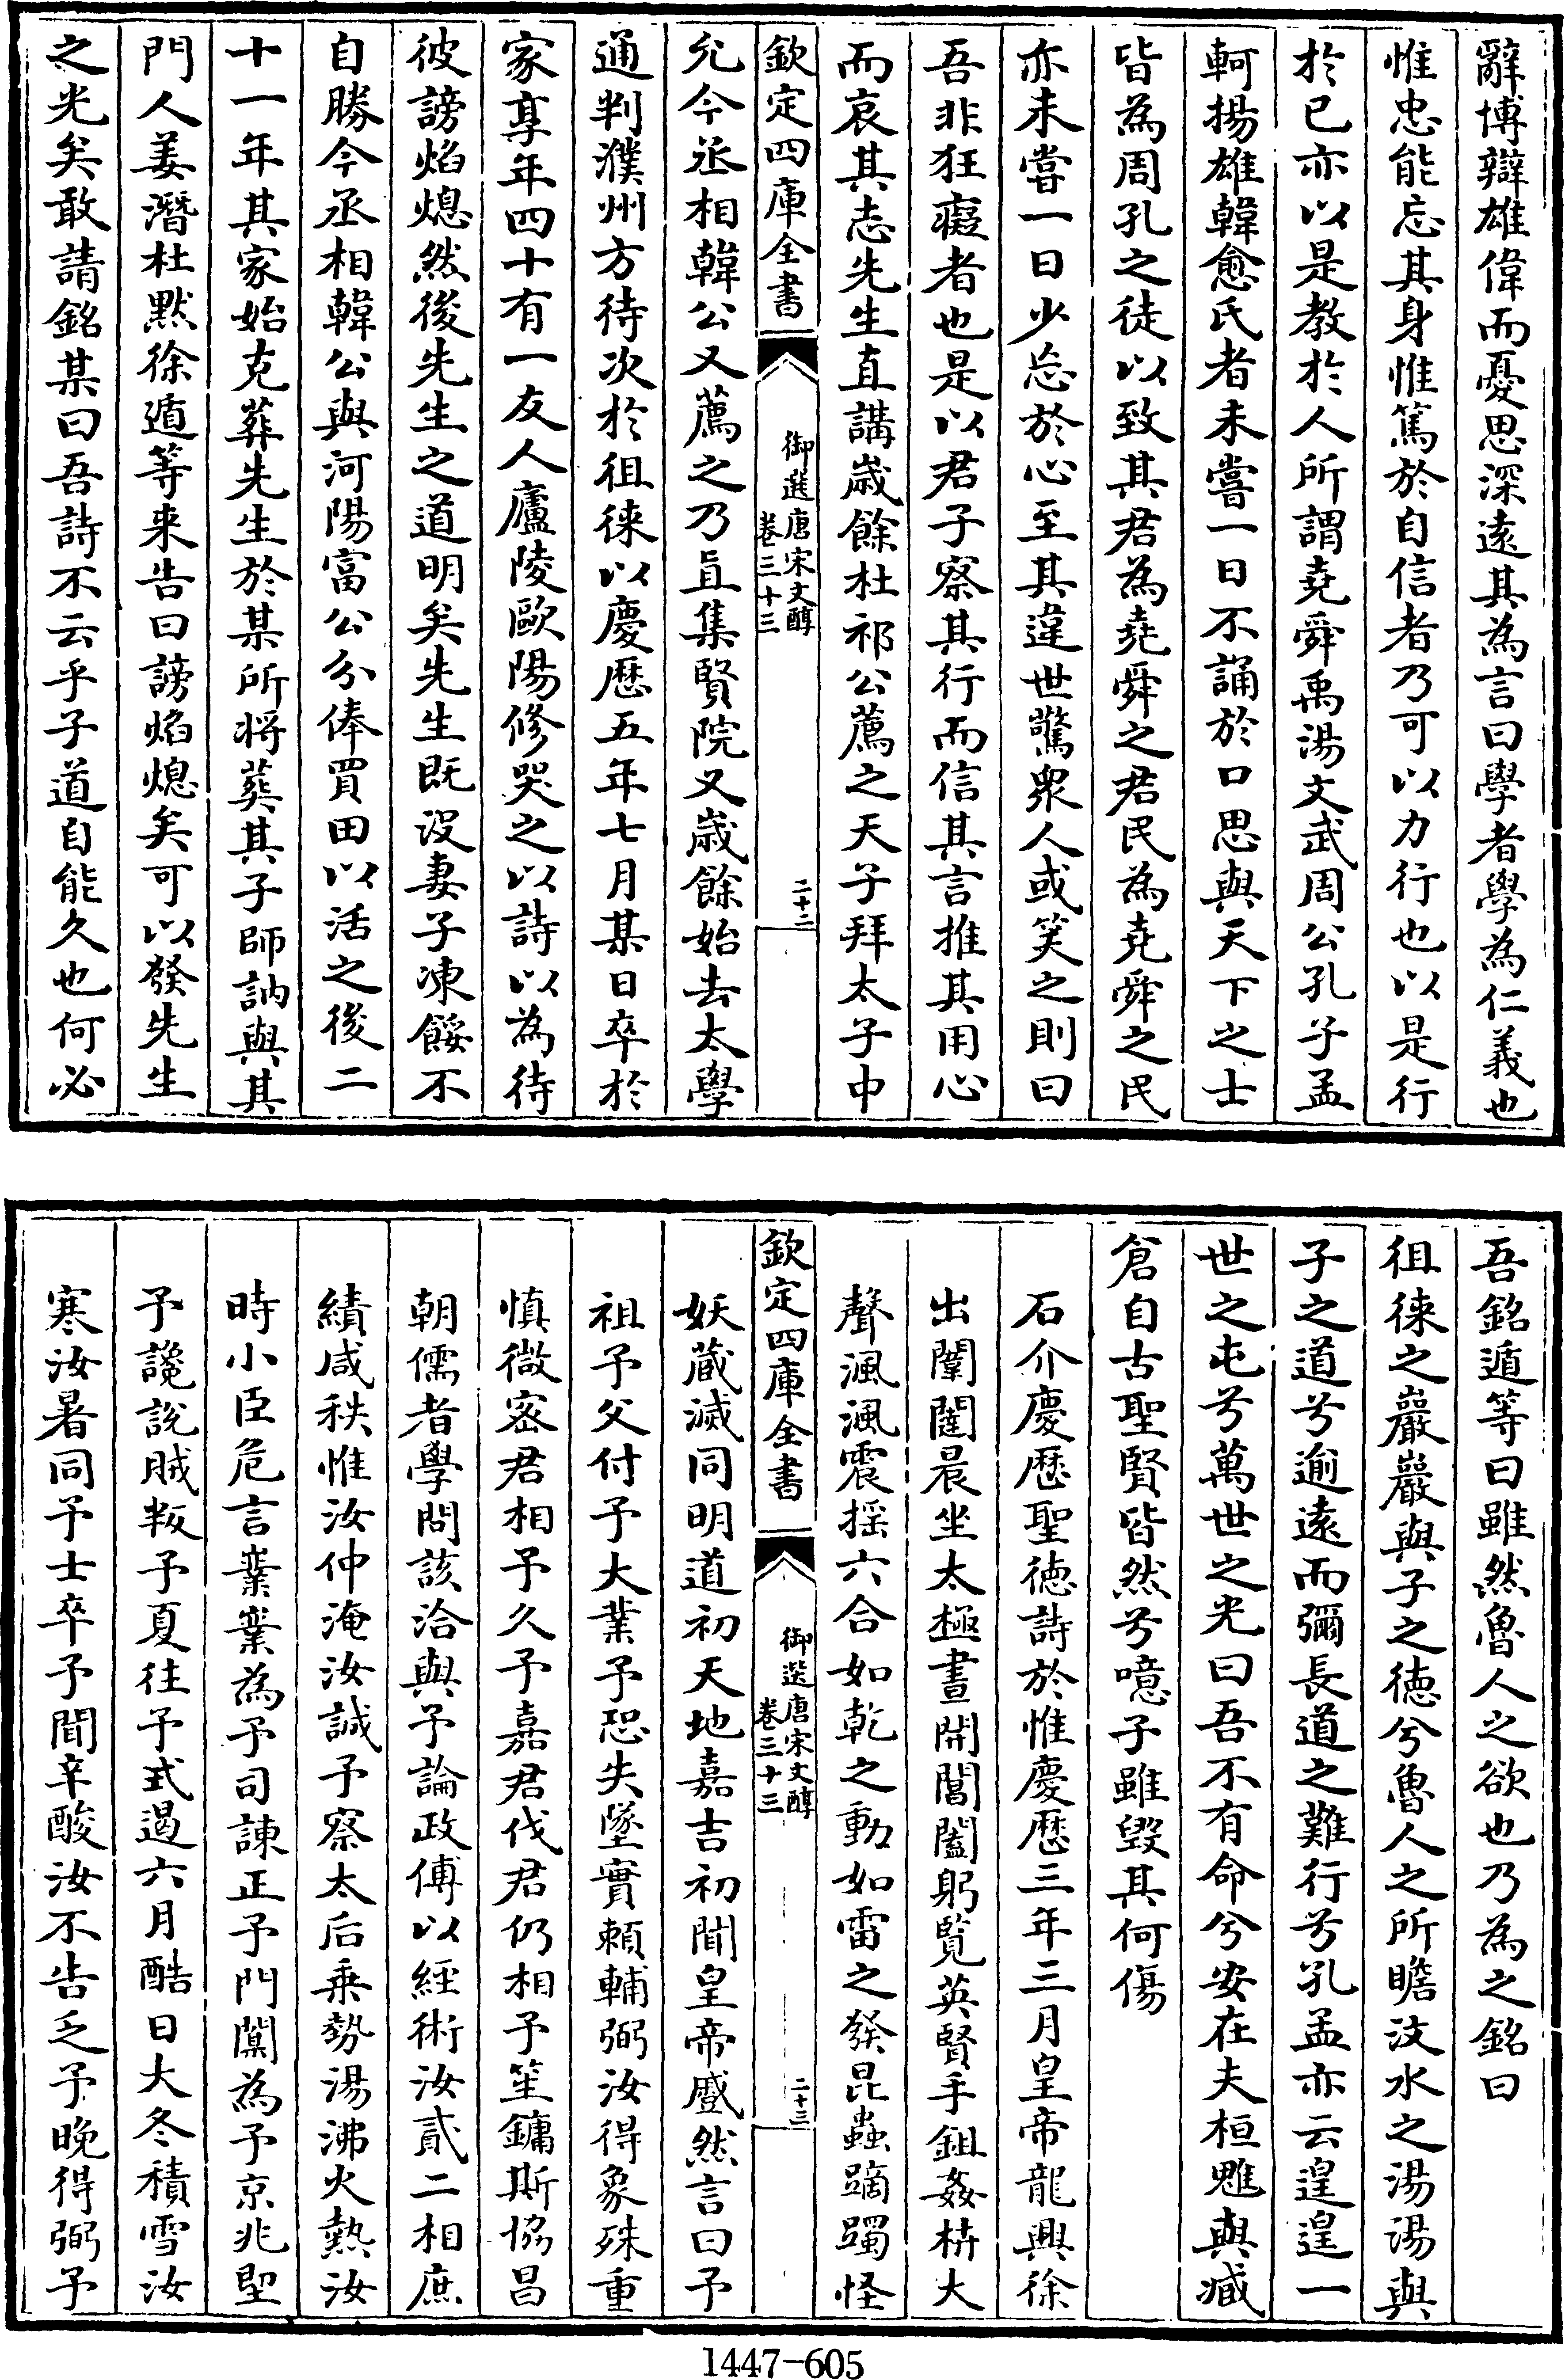 辭博辯雄偉而憂思深遠其為言曰學者學為仁義也
惟忠能忘其身惟篤於自信者乃可以力行也以是行
於已亦以是教於人所謂堯舜禹湯文武周公孔子孟
軻揚雄韓愈氏者未嘗一日不誦於口思與天下之士
皆為周孔之徒以致其君為堯舜之君民為堯舜之民
亦未嘗一日少忘於心至其違世驚衆人或笑之則曰
吾非狂癡者也是以君子察其行而信其言推其用心
而哀其志先生直講歳餘杜祁公薦之天子拜太子中
欽定四庫全書
御選唐宋文醇
卷三十三
二十二
允今丞相韓公又薦之乃直集賢院又歳餘始去太學
通判濮州方待次於徂徠以慶厯五年七月某日卒於
家享年四十有一友人廬陵歐陽修哭之以詩以為待
彼謗焰熄然後先生之道明矣先生既没妻子凍餒不
自勝今丞相韓公與河陽富公分俸買田以活之後二
十一年其家始克葬先生於某所將葬其子師訥與其
門人姜潛杜默徐遁等来告曰謗焰熄矣可以發先生
之光矣敢請銘某曰吾詩不云乎子道自能久也何必
吾銘遁等曰雖然魯人之欲也乃為之銘曰
徂徠之巖巖與子之徳兮魯人之所瞻汶水之湯湯與
子之道兮逾遠而彌長道之難行兮孔孟亦云遑遑一
世之屯兮萬世之光曰吾不有命兮安在夫桓魋與臧
倉自古聖賢皆然兮噫子雖毁其何傷
石介慶厯聖徳詩於惟慶厯三年三月皇帝龍興徐
出闈闥晨坐太極晝開閶闔躬覽英賢手鉏姦枿大
聲渢渢震摇六合如乾之動如雷之發昆蟲蹢躅怪
欽定四庫全書
御選唐宋文醇
卷三十三
二十三
妖蔵滅同明道初天地嘉吉初聞皇帝慼然言曰予
祖予父付予大業予恐失墜實頼輔弼汝得象殊重
慎微宻君相予久予嘉君伐君仍相予笙鏞斯協昌
朝儒者學問該洽與予論政傅以經術汝貳二相庶
績咸秩惟汝仲淹汝誠予察太后乗勢湯沸火熱汝
時小臣危言嶪嶪為予司諫正予門闑為予京兆堲
予讒説賊叛予夏往予式遏六月酷日大冬積雪汝
寒汝暑同予士卒予聞辛酸汝不告乏予晚得弼予
1447-605